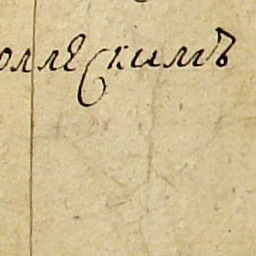 оллескимъ